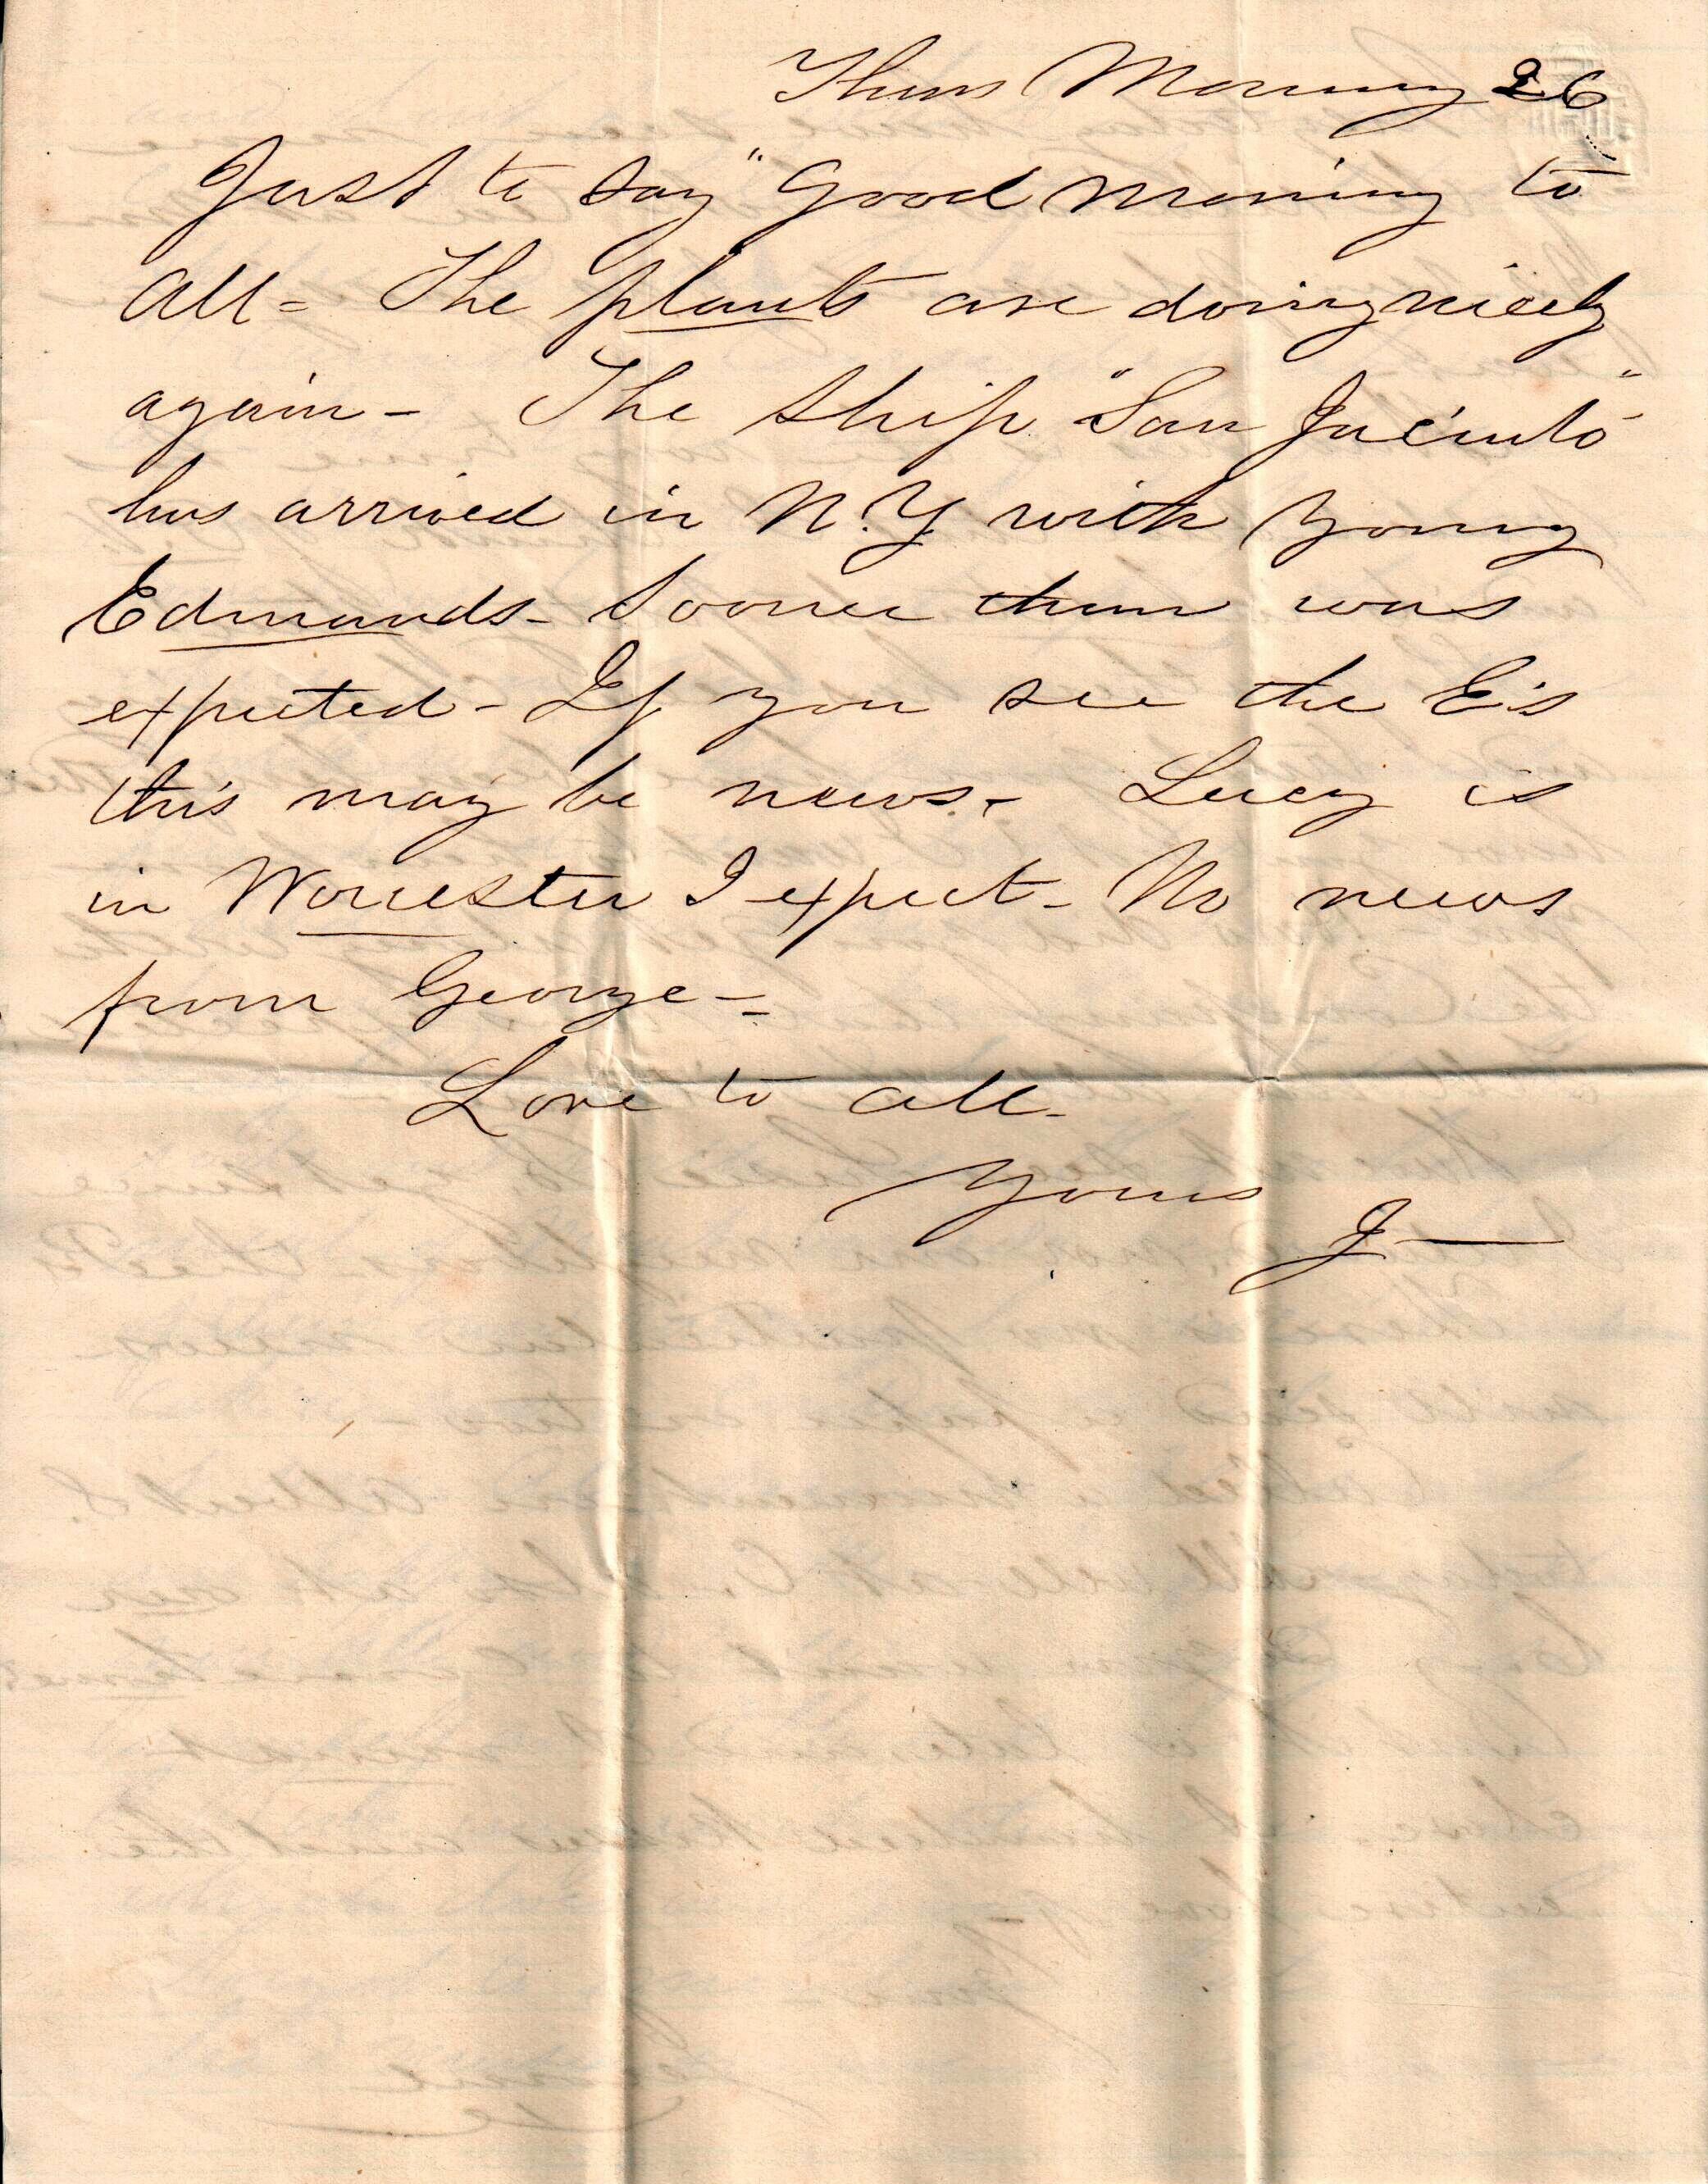 Thurs Morning 26
Just to say "Good morning to
all - The plants are doing nicely
again - The ship "San Jacinto"
has arrived in N.Y with young
Edmands - Sooner than was
expected - If you see the E's
this may be news - Lucy is
in Worcester I expect - No news
from George -
Love to all -
Yours
J—